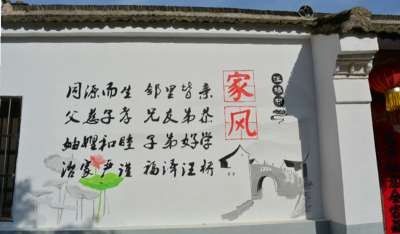 家风
同源而生 邻里皆亲
父慈子孝 兄友弟恭
妯娌和睦 子弟好学
治家严谨 福泽汪桥